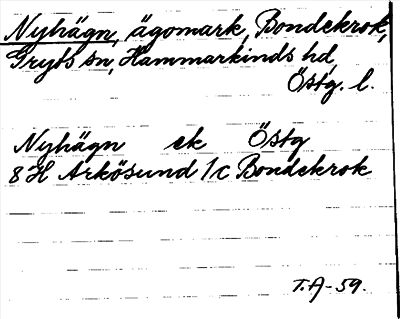 Nyhägn, ägomark, Bondekrok,
Gryts sn, Hammarkinds hd,
Östg. l.
Nyhägn ek Östg
8 H Arkösund 1c Bondekrok
T.A-59.